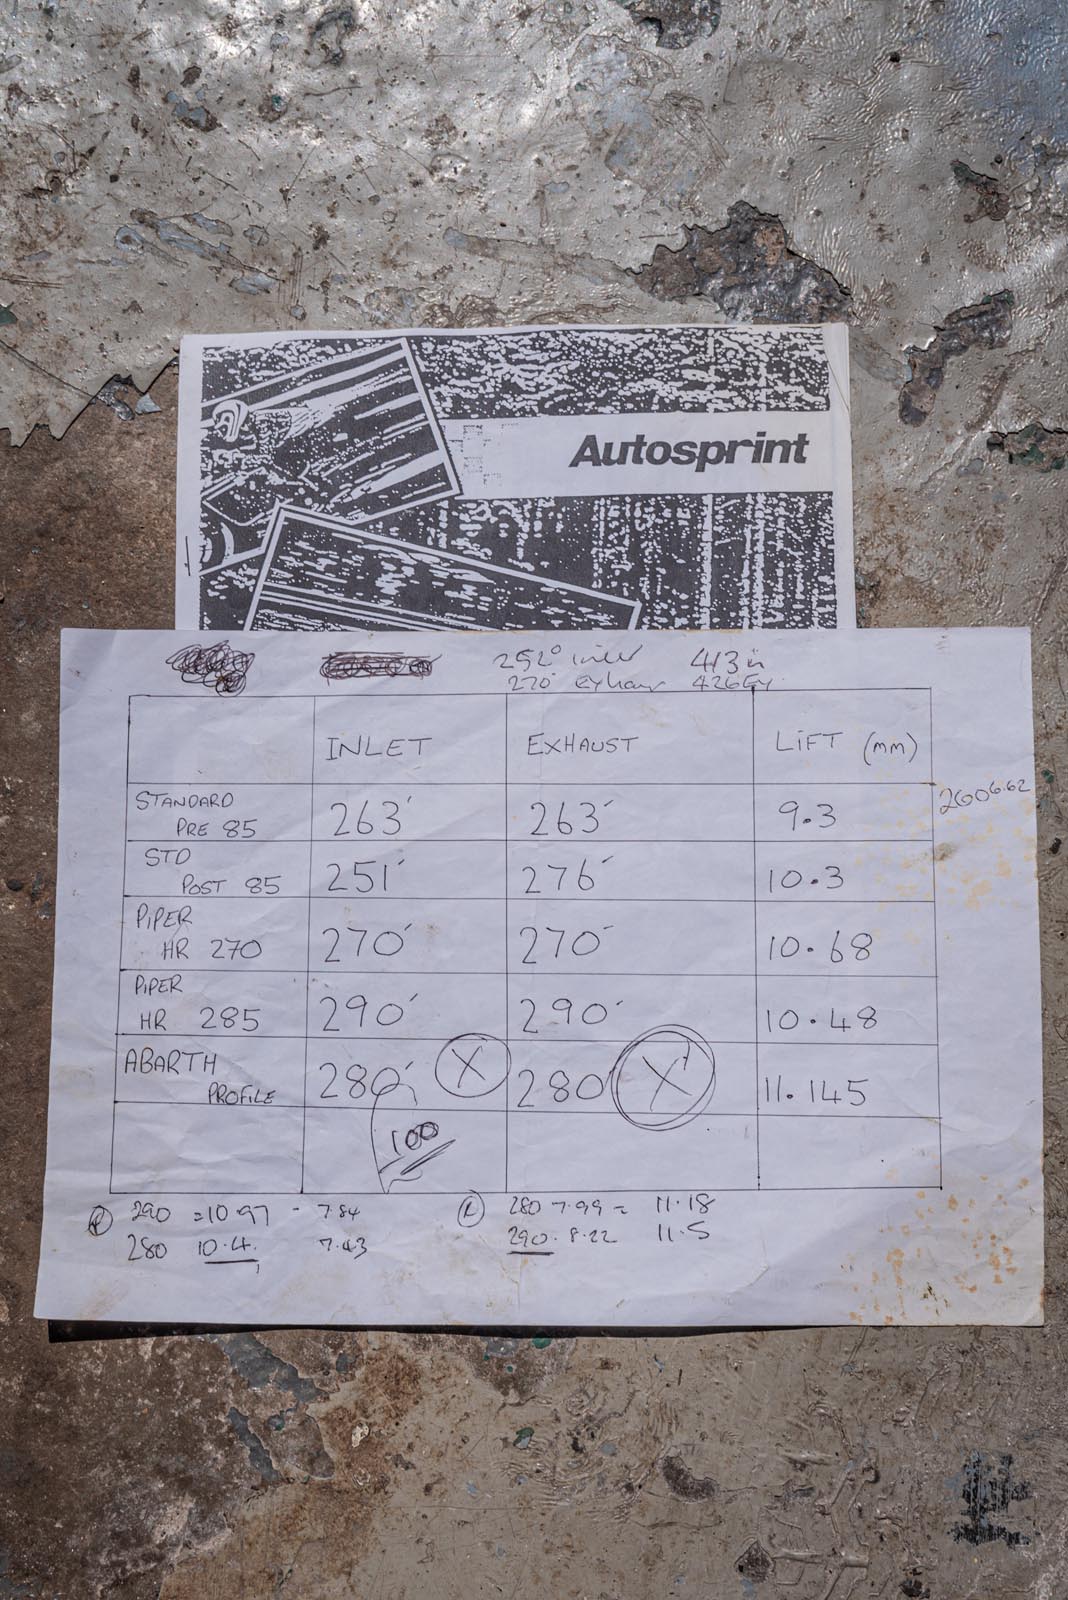 Autosprint
252° inlet 413 in
270° Exhaust 426 Ex.
INLET EXHAUST LIFT (mm)
STANDARD
PRE 85 263' 263' 9.3
260 6.62
STD
POST 85 251' 276' 10.3
PIPER
HR 270 270' 270' 10.68
PIPER
HR 285 290' 290' 10.48
ABARTH
PROFILE 280' X 280' X 11.145
100
290 = 10.97 - 7.84
280 10.4. 7.43
280 7.99 = 11.18
290. 8.22 11.5